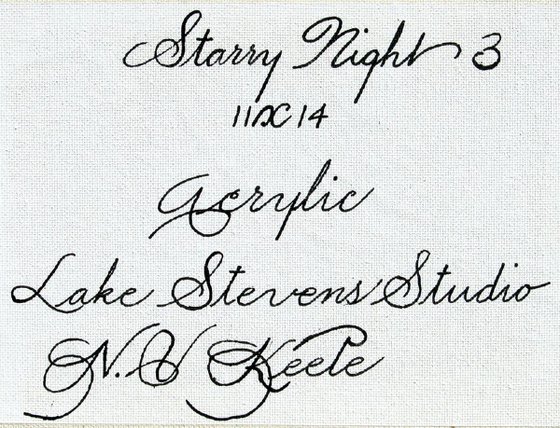 Starry Night 3
11x14
Acrylic
Lake Stevens Studio
N. V Keele